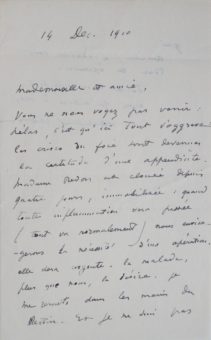 14 Dec. 1910
Mademoiselle et amie,
Vous ne nous voyez pas venir.
hélas, c'est qu'ici tout s'aggrave
les crises du foie sont devenues
la certitude d'une appendicite.
Madame Redon est clouée depuis
quatre jours, immobilisée; quand
toute inflammation sera passée
(tout va normalement) nous
la nécessité d'une opération.
elle sera urgente. la malade,
plus que nous, la désire. je
me remets dans les mains du
Destin. Et je ne suis pas